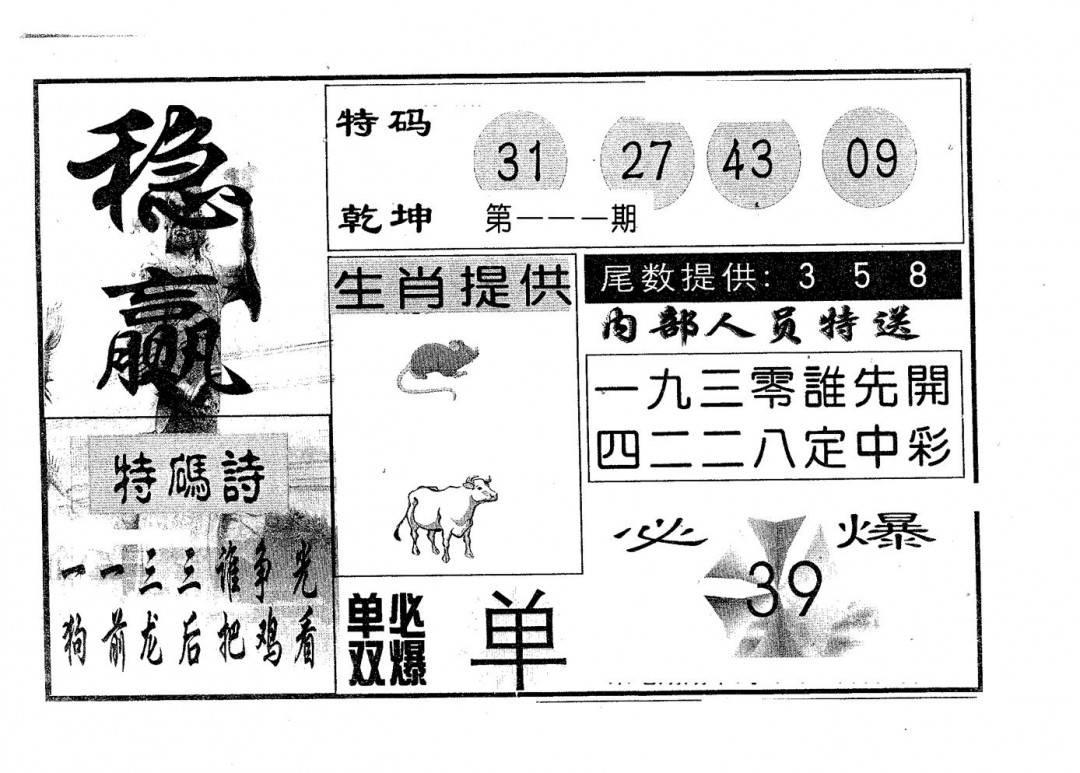 稳赢
特码
31 27 43 09
乾坤 第一一一期
生肖提供
尾数提供: 3 5 8
内部人员特送
一九三零誰先開
四二二八定中彩
特碼詩
一一三三谁争光
狗前龙后把鸡看
必爆
39
单双必爆
单